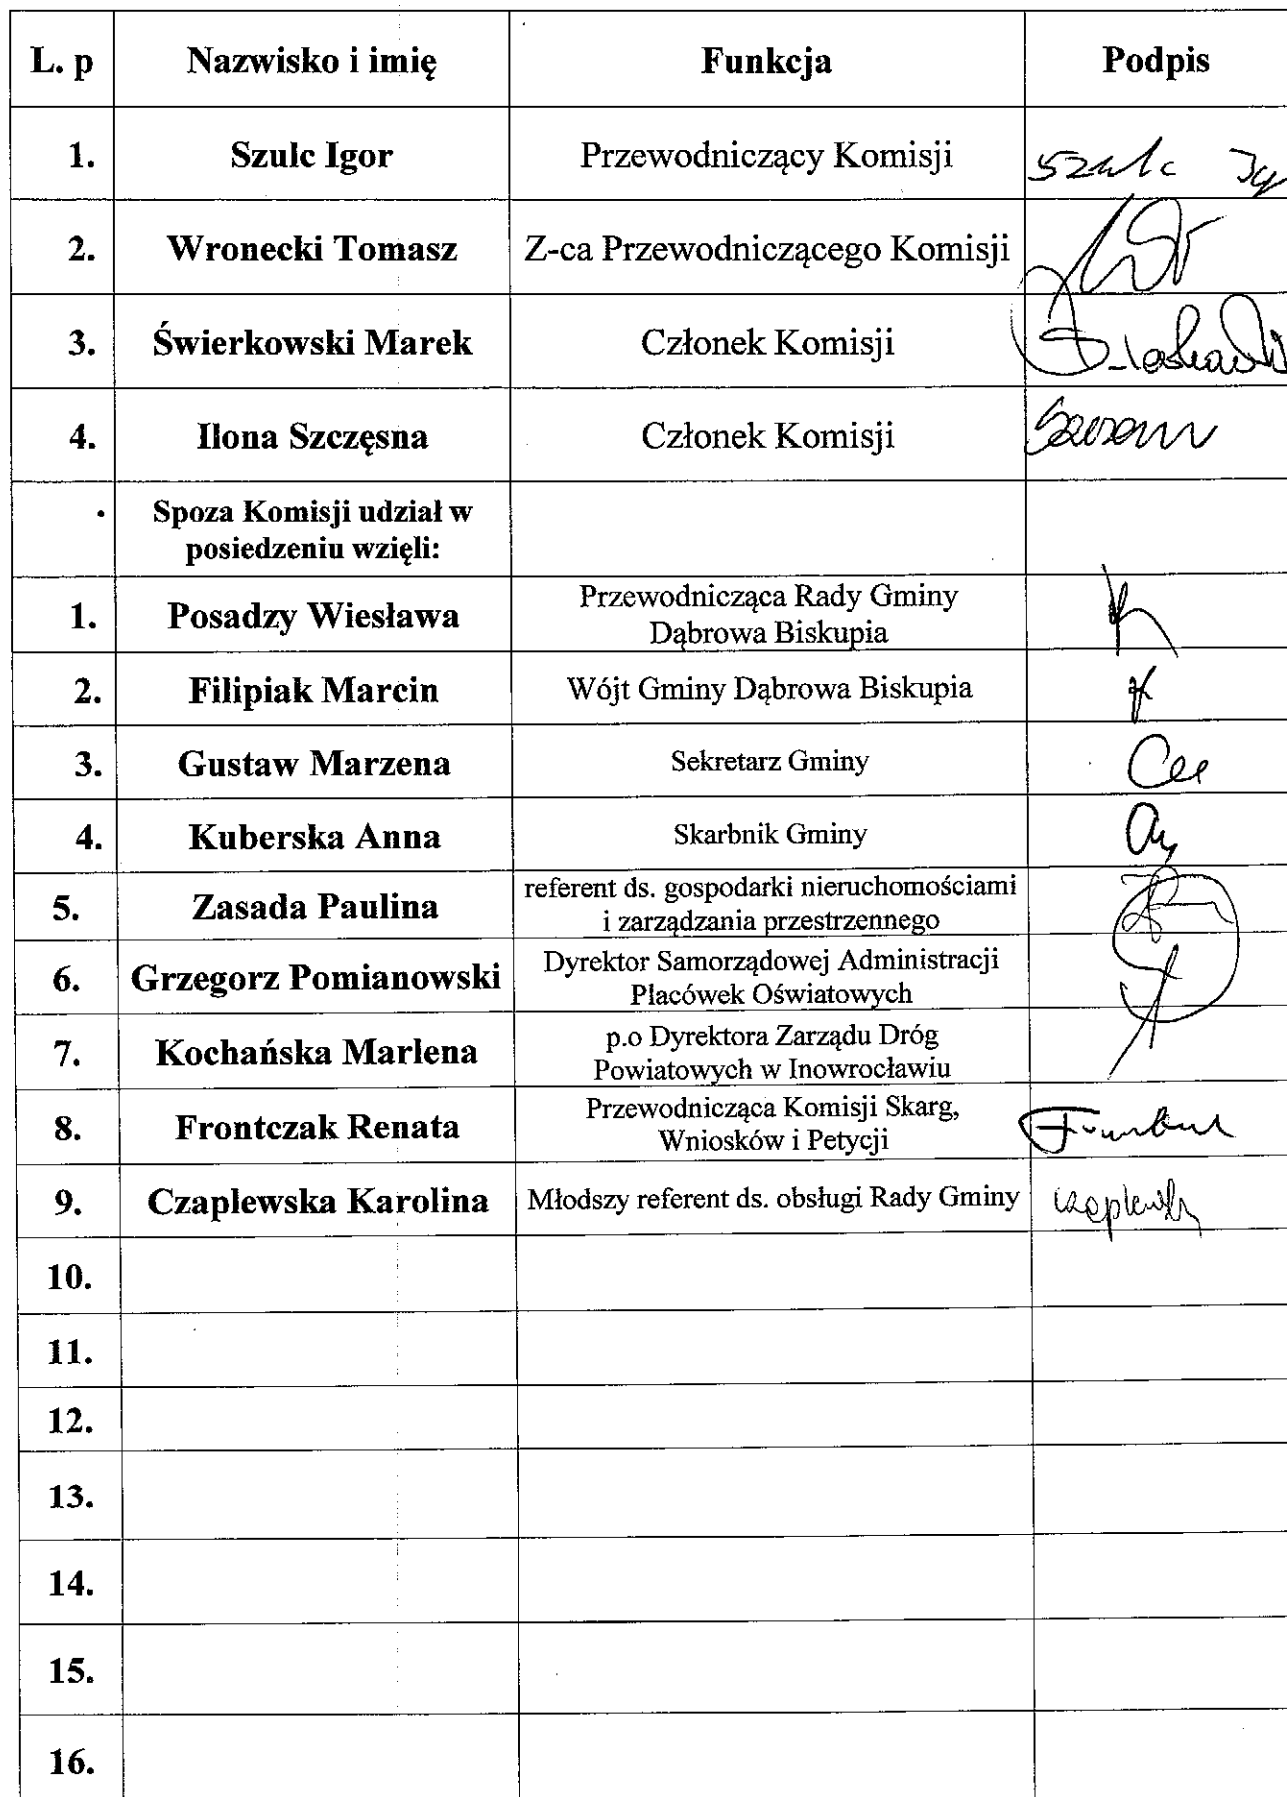 L. p Nazwisko i imię Funkcja Podpis
1. Szulc Igor Przewodniczący Komisji Szulc
2. Wronecki Tomasz Z-ca Przewodniczącego Komisji
3. Świerkowski Marek Członek Komisji
4. Ilona Szczęsna Członek Komisji
Spoza Komisji udział w
posiedzeniu wzięli:
1. Posadzy Wiesława Przewodnicząca Rady Gminy
Dąbrowa Biskupia
2. Filipiak Marcin Wójt Gminy Dąbrowa Biskupia
3. Gustaw Marzena Sekretarz Gminy
4. Kuberska Anna Skarbnik Gminy
5. Zasada Paulina referent ds. gospodarki nieruchomościami
i zarządzania przestrzennego
6. Grzegorz Pomianowski Dyrektor Samorządowej Administracji
Placówek Oświatowych
7. Kochańska Marlena p.o Dyrektora Zarządu Dróg
Powiatowych w Inowrocławiu
8. Frontczak Renata Przewodnicząca Komisji Skarg,
Wniosków i Petycji
9. Czaplewska Karolina Młodszy referent ds. obsługi Rady Gminy
10.
11.
12.
13.
14.
15.
16.